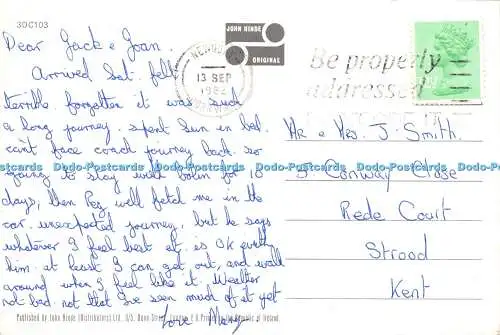 3DC103
JOHN HINDE
ORIGINAL
13 SEP
1982
Be properly
addressed
Dear Jack & Joan.
Arrived Sat. felt
terrible, forgotten it was such
a long journey, spent Sun in bed.
can't face coach journey back. so
going to stay with for 18
days, then Reg will fetch me in the
car. unexpected journey, but he says
whatever I feel best it is OK with
him. at least I can get out, and walk
around when I feel like it. Weather
not bad. not that I've seen much of it yet
Love Mary
Mr & Mrs. J. Smith.
5 Conway Close
Rede Court
Strood
Kent
Dodo-Postcards Dodo-Postcards Dodo-Postcards Dodo-Postcards Dodo-Postcards
Published by John Hinde (Distributors) Ltd.,
of Ireland.